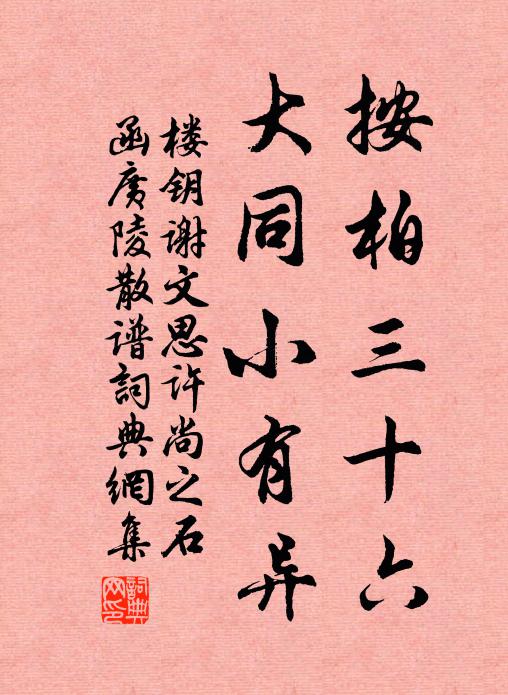 按柏三十六
大同小有异
楼钥谢文思许尚之石
函广陵散谱詞典網集
詞典网印